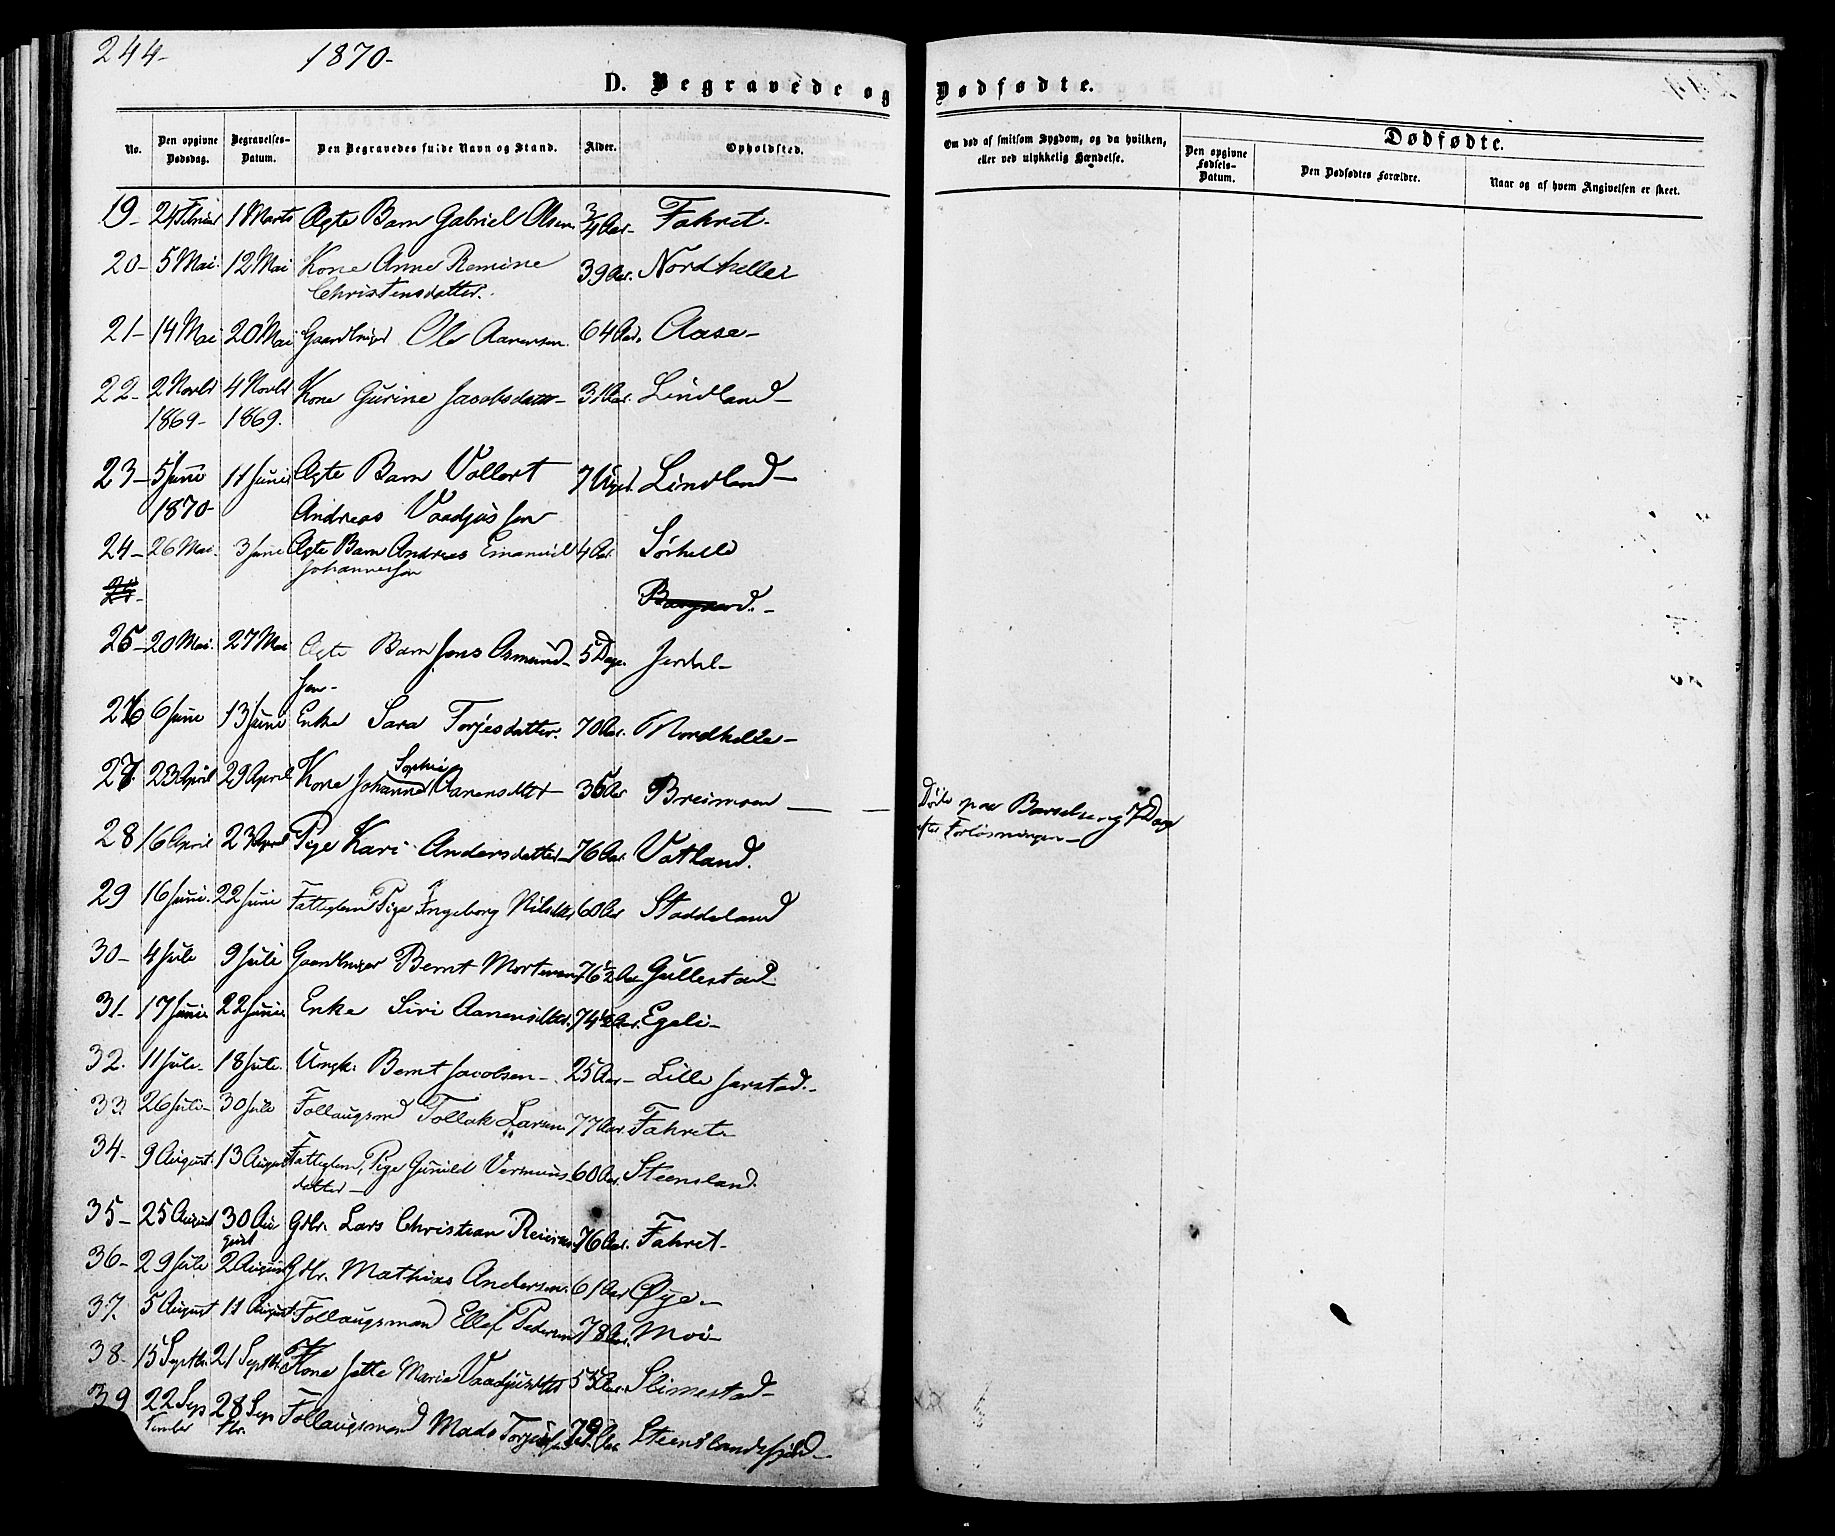 244-
1870-
D. Begravede og Dødfødte.
No. Den opgivne Dødsdag. Begravelses-Datum. Den Begravedes fulde Navn og Stand. Alder. Opholdsted. Om død af smitsom Sygdom, og da hvilken, eller ved ulykkelig Hændelse. Dødfødte.
Den opgivne Fødsels-Datum. Den Dødfødtes Forældre. Naar og af hvem Angivelsen er skeet.
19- 24 1 Marts Ægte Barn Gabriel Olsen 3/4 Aar- Fahret-
20- 5 Mai 12 Mai Kone Anne Remine 39 Aar. Nordhelle
Christensdatter.
21- 14 Mai 20 Mai Ole Aanensen 64 Aar. Aase-
22- 2 Novbr 4 Novbr Kone Gurine Jacobsdatter- 31 Aar. Lindland-
1869- 1869.
23- 5 Juni 11 Juni Ægte Barn Vollert 7 Uger. Lindland-
1870- Andreas Vaadjussen
24- 26 Mai 3 June Ægte Barn Andreas Emanuel 4 Aar Sørhelle
Johannessen
25- 20 Mai. 27 Mai Ægte Barn Jens Asmund- 5 Dage.
sen-
26 6 June 13 Juni Enke Sara Torjesdatter. 70 Aar. Nordhelle-
27. 23 April 29 April Kone Johanne Sophie Aanensdttr 35 Aar Breimoen- Døde paa Barselseng 7 Dage
efter Forløsningen-
28 16 April 23 April Pige Kari Andersdatter- 76 Aar. Vatland.
29 16 Juni. 22 Juni Fattiglem Pige Ingeborg Nilsdtr 60 Aar Staddeland
30- 4 Jule 9 Juli Gaardbruger Bernt Mortensen 76 1/2 Aar Gullestad-
31- 17 Juni 22 Juni Enke Siri Aanensdtter. 74 1/2 Aar. Egeli-
32. 11 Jule- 18 Jule. Ungk. Bernt Jacobsen- 25 Aar- Lille Jerstad.-
33. 26 Juli- 30 Jule Follaugsmd Tollak Larsen 77 Aar. Fahret-
34- 9 August. 13 August Fattiglem, Pige Gunild Vermuns- 60 Aar. Steensland.
datter-
35- 25 August 30 Au Gbr. Lars Christian Reiersen 76 Aar. Fahret-
gust
36- 29 Jule 2 August Gbr. Mathias Andersen. 61 Aar Øye-
37. 5 August 11 August. Follaugsmand Ellef Pedersen 78 Aar. Moi-
38- 15 Septbr. 21 Septbr. Kone Jette Marie Vaadjusdttr Aar. Slimestad-
39 22 Sep 28 Sep Follaugsmand Mads Torjussen 79 Aar Steenslandsfjeld-
tember tbr.